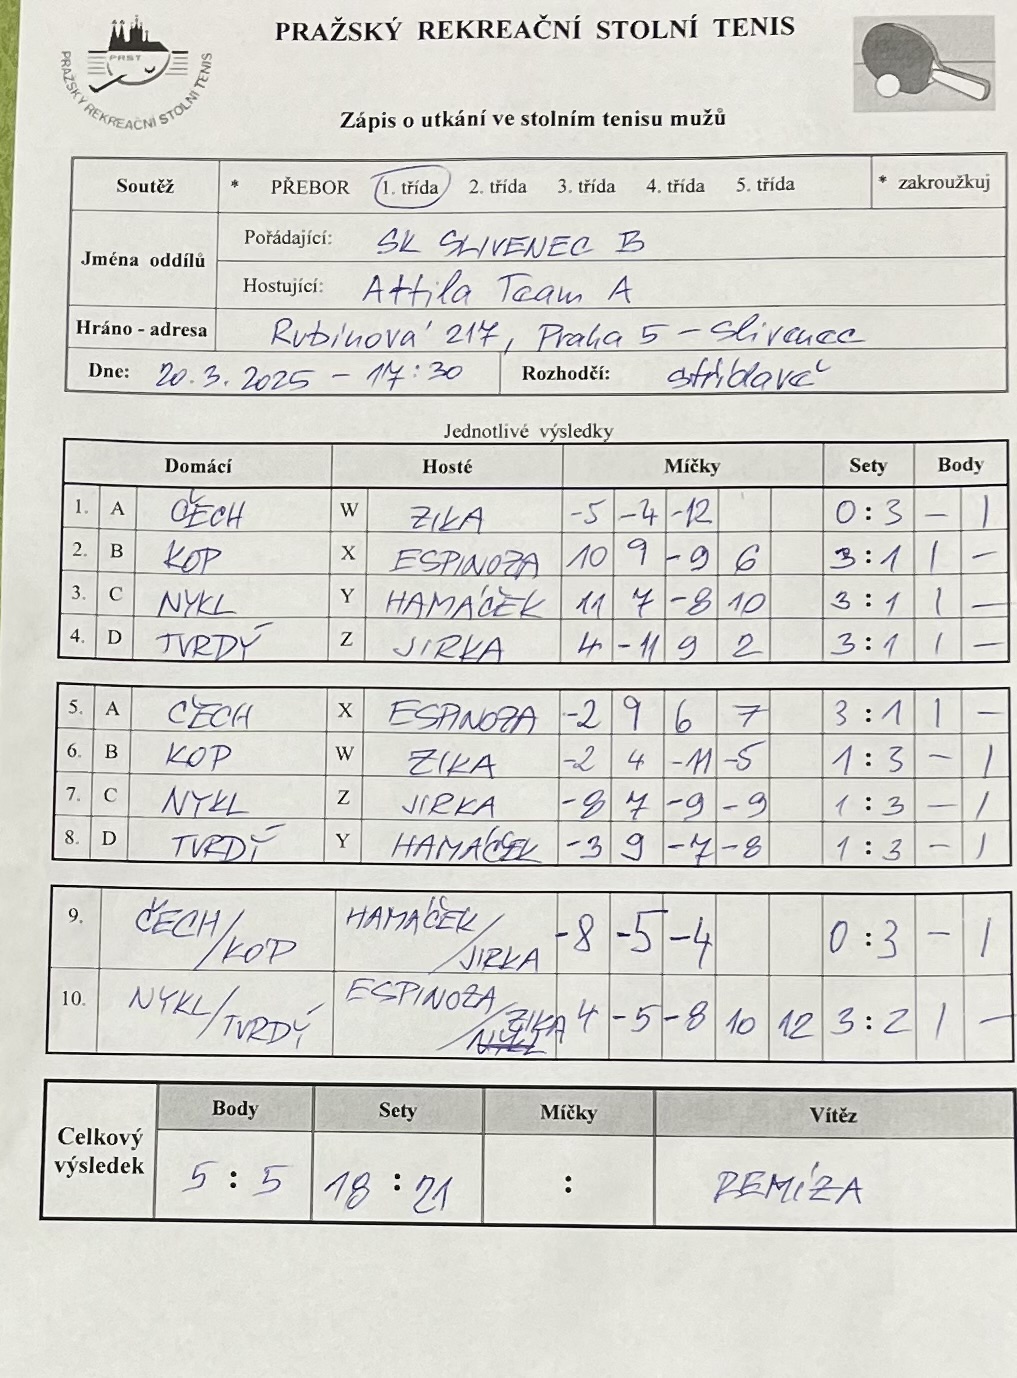 PRAŽSKÝ REKREAČNÍ STOLNÍ TENIS
PRST
PRAŽSKÝ REKREAČNÍ STOLNÍ TENIS
Zápis o utkání ve stolním tenisu mužů
Soutěž * PŘEBOR 1. třída 2. třída 3. třída 4. třída 5. třída * zakroužkuj
Jména oddílů
Pořádající: SK SLIVENEC B
Hostující: Attila Team A
Hráno - adresa Rubínová 217, Praha 5 – Slivenec
Dne: 20.3.2025 – 17:30 Rozhodčí: střídavě
Jednotlivé výsledky
Domácí Hosté Míčky Sety Body
1. A ČECH W ZIKA -5 -4 -12 0 : 3 – 1
2. B KOP X ESPINOZA 10 9 -9 6 3 : 1 1 –
3. C NYKL Y HAMÁČEK 11 7 -8 10 3 : 1 1 –
4. D TVRDÝ Z JIRKA 4 -11 9 2 3 : 1 1 –
5. A ČECH X ESPINOZA -2 9 6 7 3 : 1 1 –
6. B KOP W ZIKA -2 4 -11 -5 1 : 3 – 1
7. C NYKL Z JIRKA -8 7 -9 -9 1 : 3 – 1
8. D TVRDÝ Y HAMÁČEK -3 9 -7 -8 1 : 3 – 1
9. ČECH/KOP HAMÁČEK/JIRKA -8 -5 -4 0 : 3 – 1
10. NYKL/TVRDÝ ESPINOZA/ZIKA 4 -5 -8 10 12 3 : 2 1 –
Celkový výsledek
Body Sety Míčky Vítěz
5 : 5 18 : 21 : REMÍZA